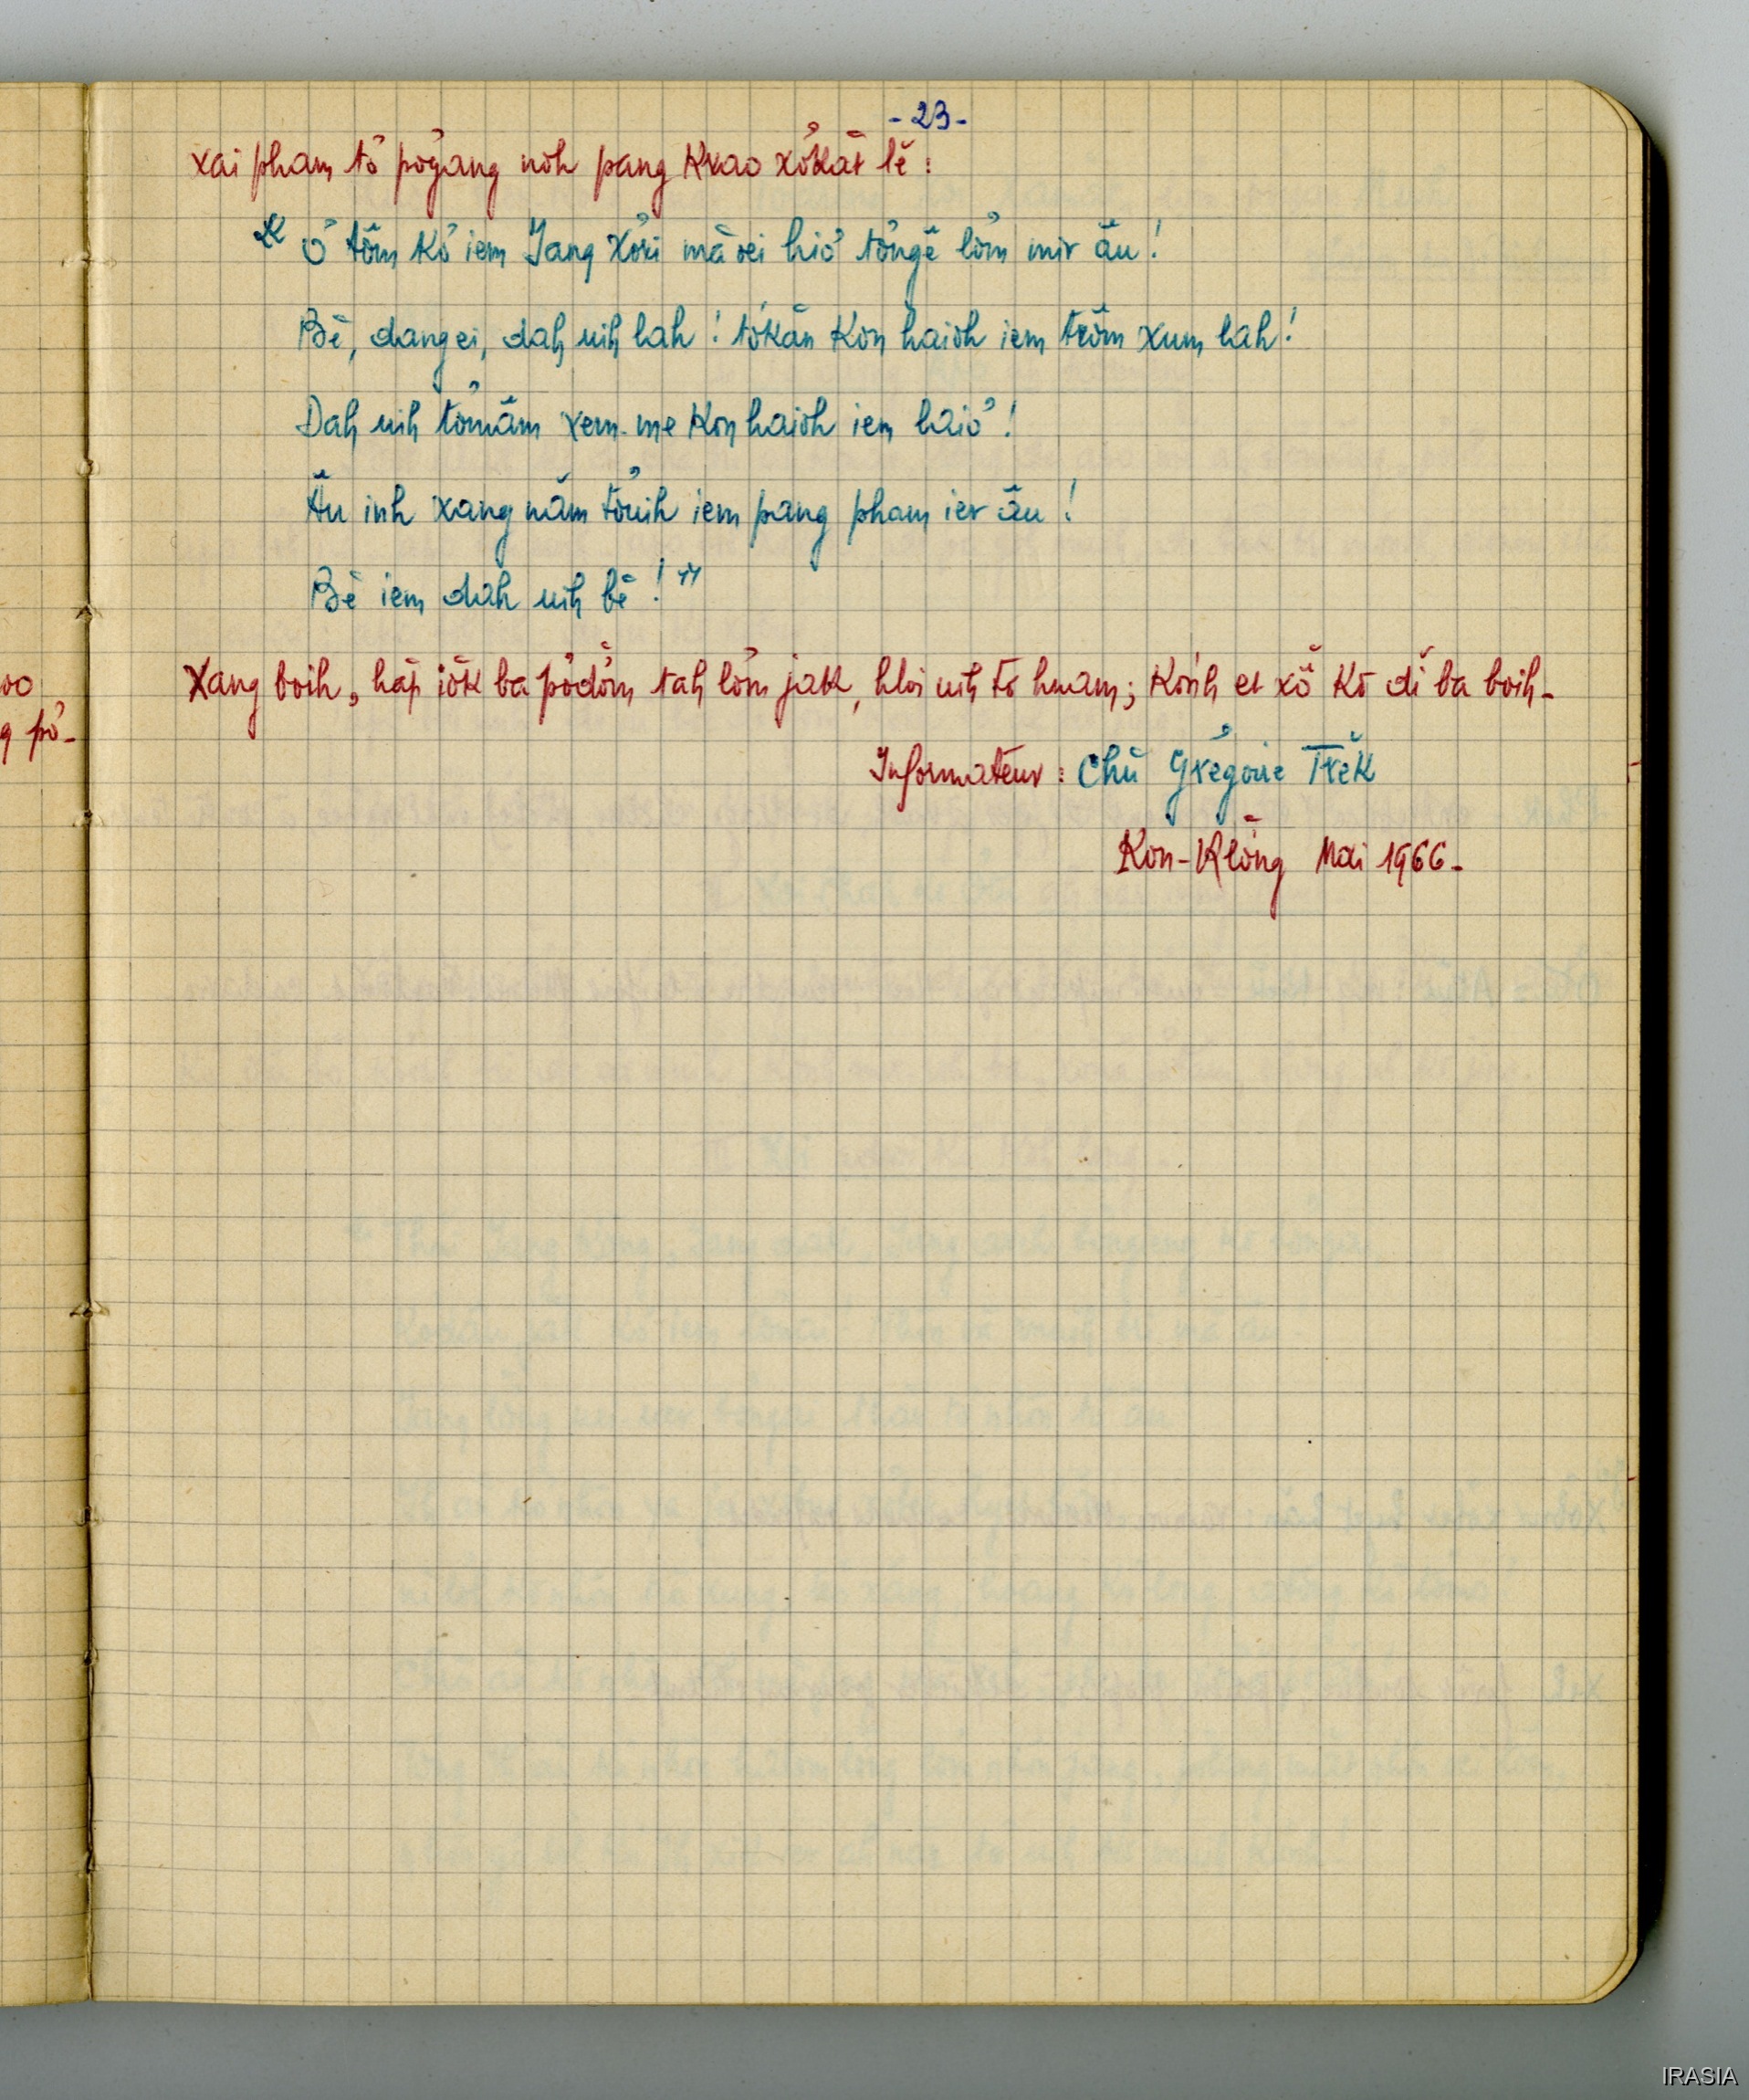 - 23 -
xai pham tơ̆ pơgang noh pang krao xơkăt lĕ :
" Ơ tơ̆m kơ iem Jang Xơri mă oei hiơ̆ tơngĕ lơ̆m mir âu !
Bĕ, dang ei, dah uih lah ! tơkăn kon haioh iem trŏm xum lah !
Dah uih tơmăm xem-me kon haioh iem haiơ̆ !
Âu inh xang năm tơuih iem pang pham ier âu !
Bĕ iem dah uih bĕ ! "
Xang boih, hăp iŏk ba pơdŏm tah lơ̆m jak, hloi uih tơ̆ hnam ; kơnh et xŏ kơ đĭ ba boih -
Informateur : Chŭ Grégoire Trĕk
Kon-Klŏng Mai 1966 -
oo
g pơ -
IRASIA